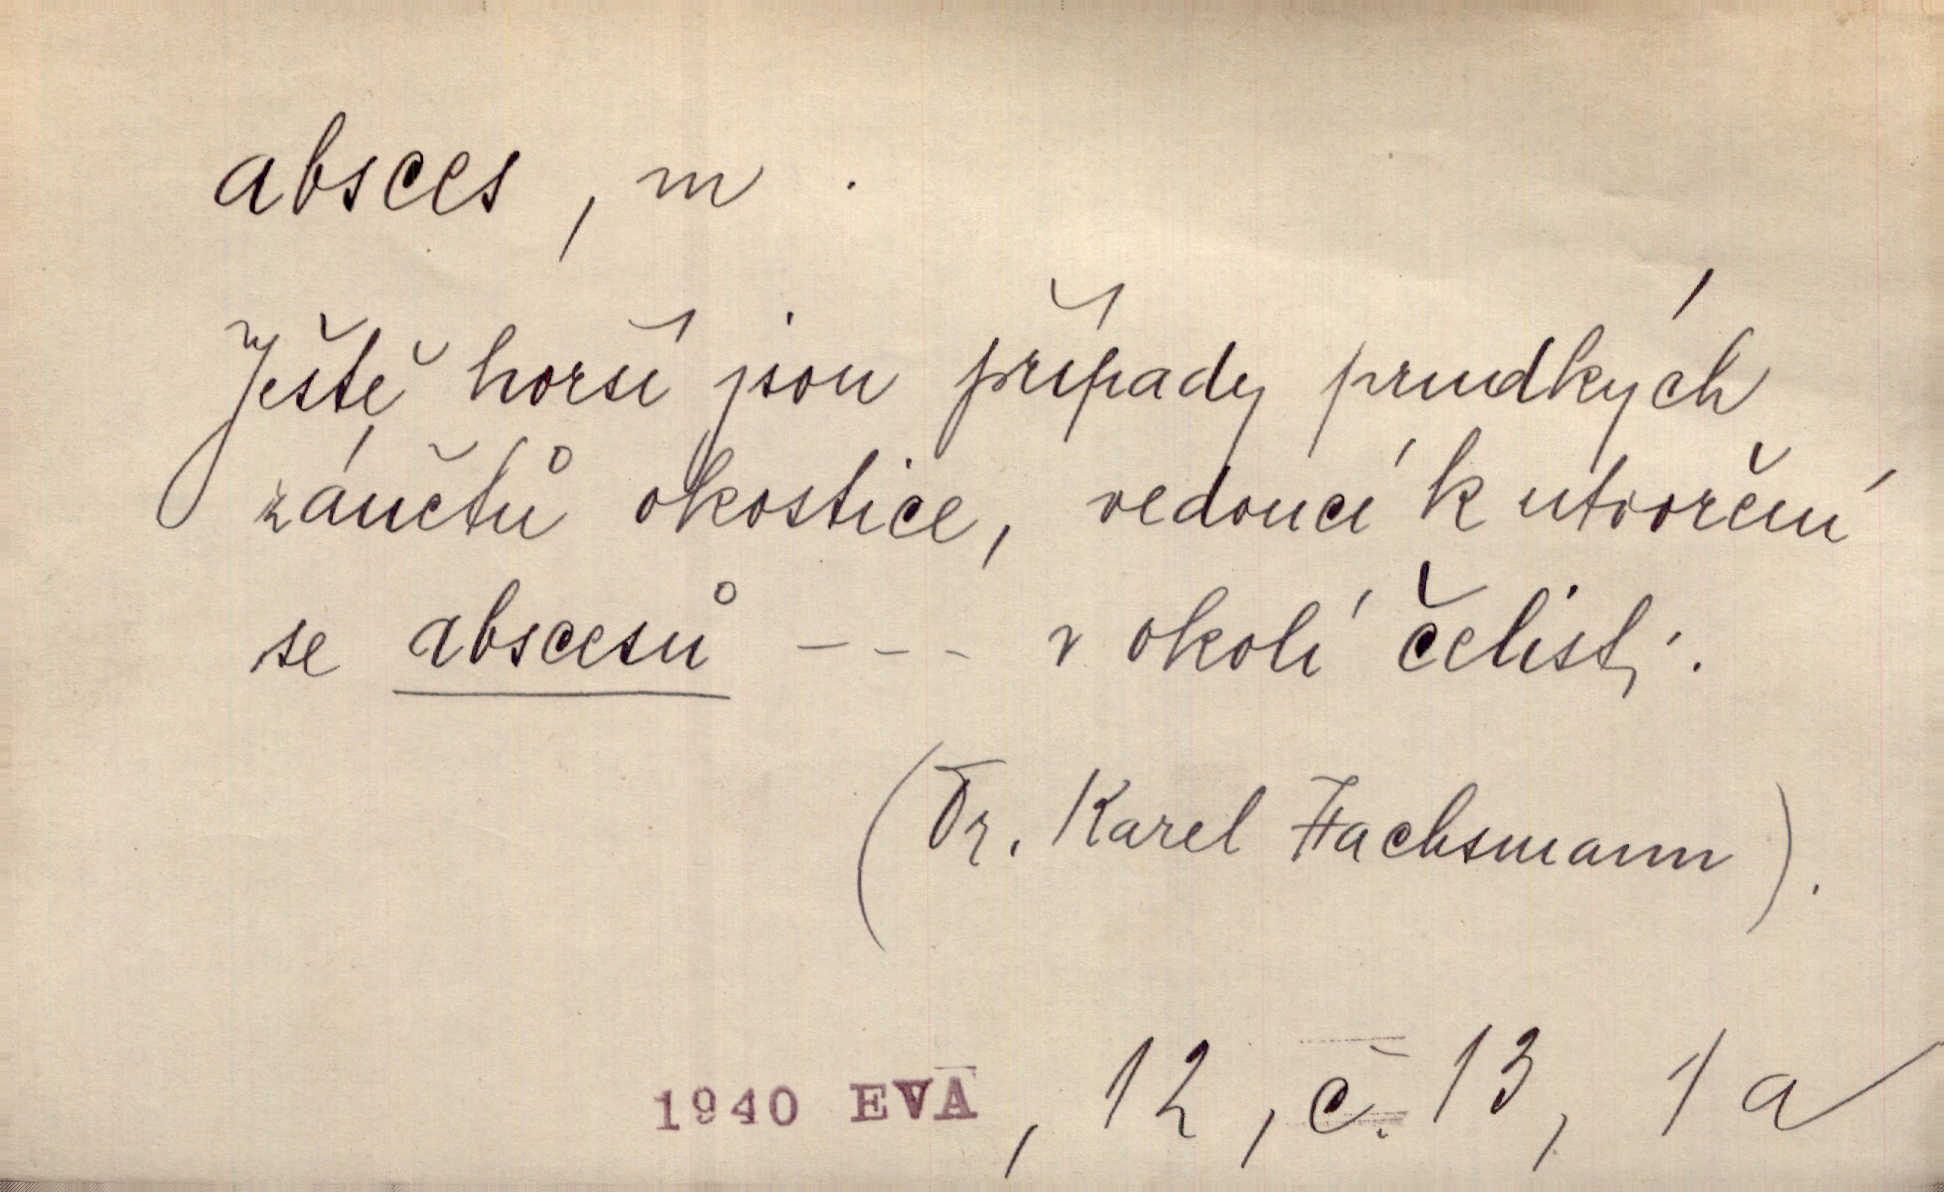 absces, m.
Ještě horší jsou případy prudkých
zánětů okostice, vedoucí k utvoření
se abscesů --- v okolí čelisti.
(Dr. Karel Hachsmann).
1940 EVA, 12, č. 13, 1a